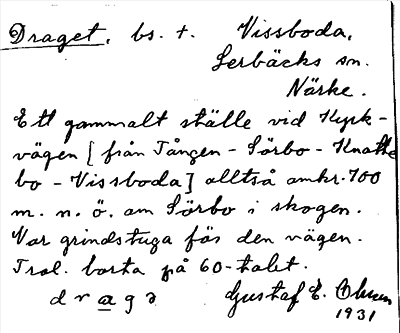 Draget, bs. t. Vissboda,
Lerbäcks sn.
Närke.
Ett gammalt ställe vid Kyrk-
vägen [från Tången - Sörbo - Knatte
bo - Vissboda] alltså omkr. 700
m. n. ö. om Sörbo i skogen.
Var grindstuga för den vägen.
Trol. borta på 60-talet.
d r a g ə Gustaf E.
1931